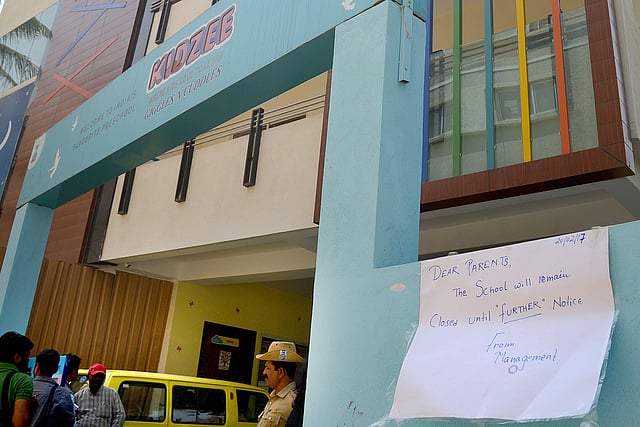 KIDZEE
WELCOME TO INDIA'S
FAVOURITE PRESCHOOL
GIGGLES N CUDDLES
20/02/17
DEAR PARENTS,
The School will remain
Closed until "FURTHER" Notice
From
Management